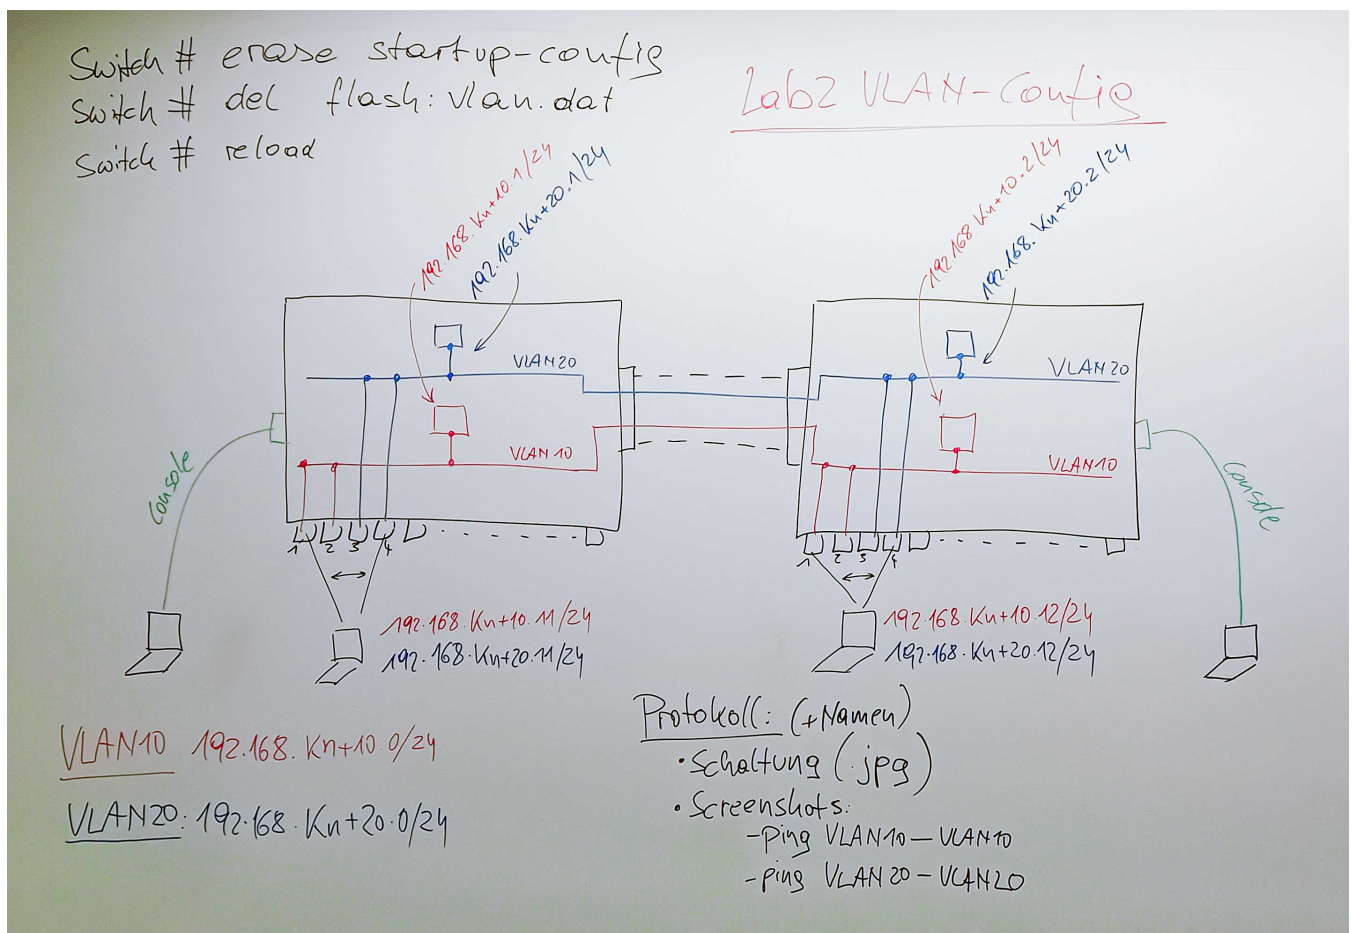 Switch # erase startup-config
Switch # del flash: vlan.dat
Switch # reload
Lab2 VLAN-Config
192.168.Kn+10.1/24
192.168.Kn+20.1/24
192.168.Kn+10.2/24
192.168.Kn+20.2/24
VLAN20
VLAN20
VLAN10
VLAN10
Console
Console
1 2 3 4
1 2 3 4
192.168.Kn+10.11/24
192.168.Kn+20.11/24
192.168.Kn+10.12/24
192.168.Kn+20.12/24
VLAN10 192.168.Kn+10.0/24
VLAN20: 192.168.Kn+20.0/24
Protokoll: (+Namen)
• Schaltung (.jpg)
• Screenshots:
-ping VLAN10-VLAN10
-ping VLAN20-VLAN20